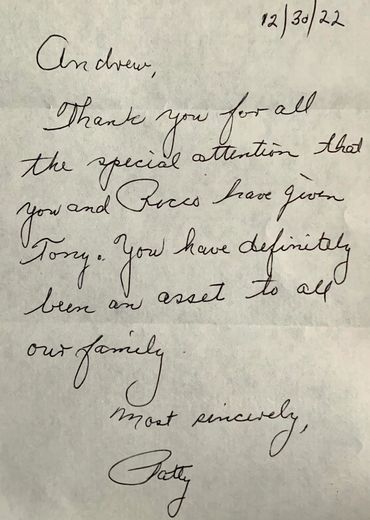 12/30/22
Andrew,
Thank you for all
the special attention that
you and Rocco have given
Tony. You have definitely
been an asset to all
our family
Most sincerely,
Patty